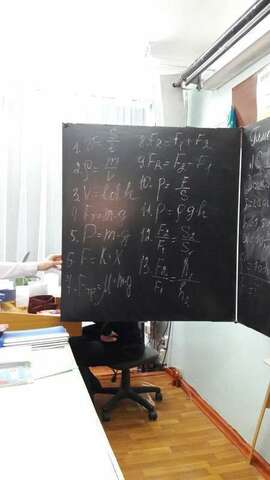 1. υ = S/t
2. ρ = m/V
3. V = l·d·h
4. Fт = m·g
5. P = m·g
6. F = K·X
7. Fтр = μ·m·g
8. FR = F1 + F2
9. FR = F2 - F1
10. P = F/S
11. P = ρgh
12. F2/F1 = S2/S1
13. F2/F1 = h1/h2